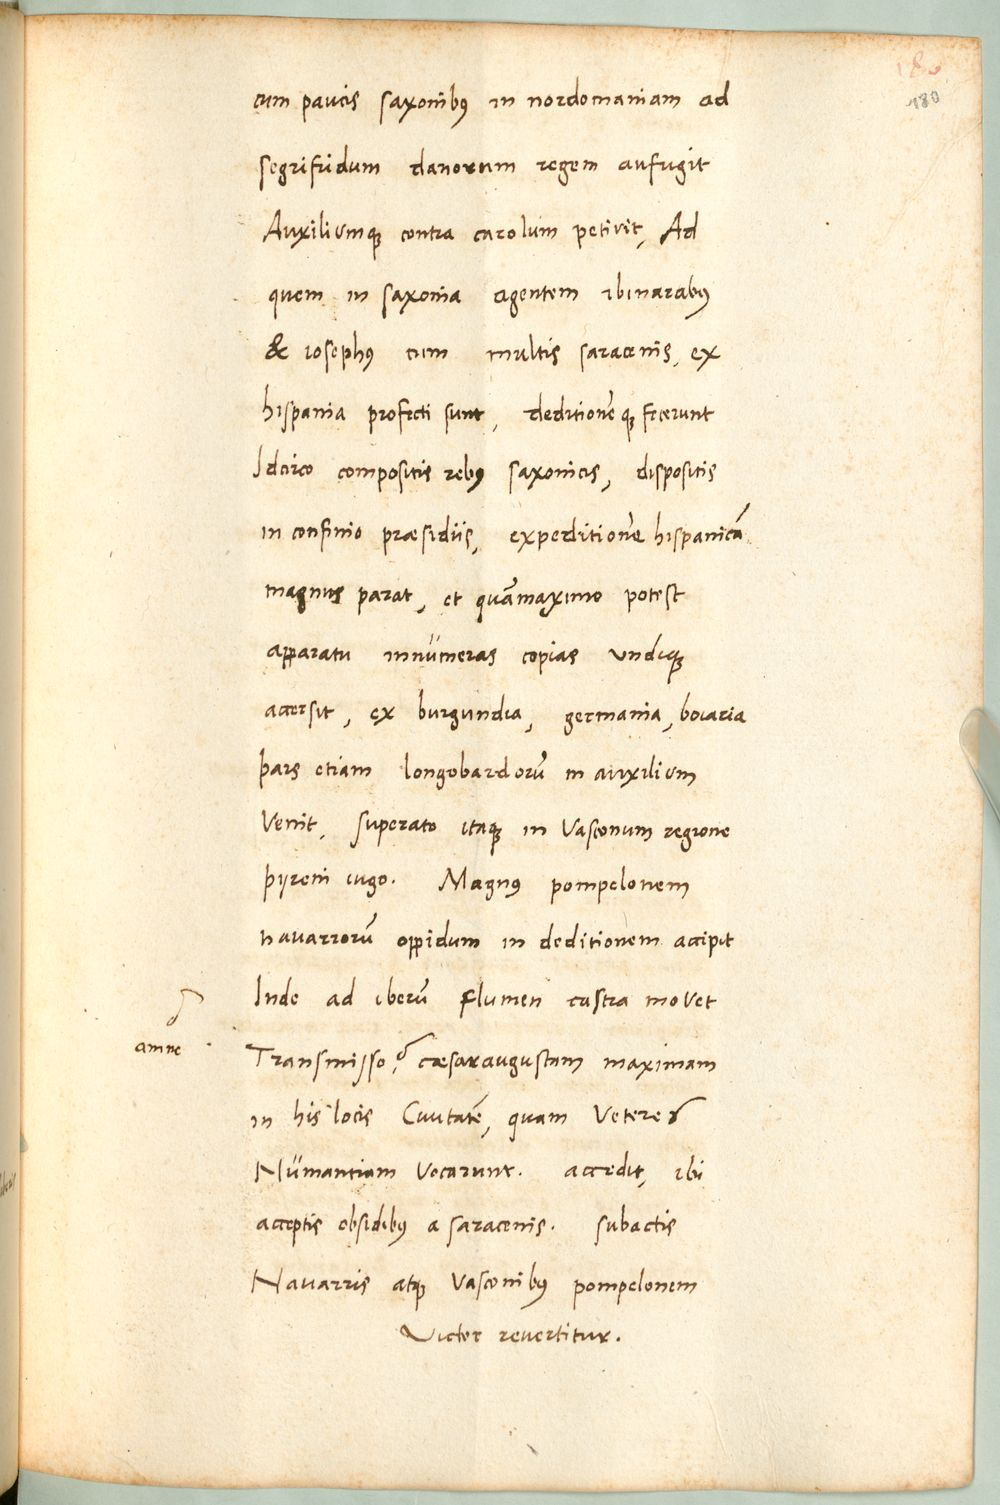 180
180
cum paucis saxonibꝰ in nordomaniam ad
segrifridum danorum regem aufugit
Auxiliumqꝫ contra carolum petivit, Ad
quem in saxonia agentem ibinarabꝰ
& iosephꝰ cum multis saracenis, ex
hispania profecti sunt, deditionē qꝫ fecerunt
Idcirco compositis rebꝰ saxonicis, dispositis
in confinio præsidiis, expeditionē hispanicā
magnus parat, et quāmaximo potest
apparatu innūmeras copias undiqꝫ
accersit, ex burgundia, germania, boiaria
pars etiam longobardorū in auxilium
Venit, superato itaqꝫ in Vasconum regione
pyreni iugo. Magnꝰ pompelonem
navarrorū oppidum in deditionem accipit
Inde ad iberū flumen castra movet
amne
Transmisso, cæsaraugustam maximam
in his locis Civitatē, quam Veteres
Nūmantiam Vocarunt. accedit, ibi
acceptis obsidibꝰ a saracenis. subactis
Navarris atqꝫ Vasconibꝰ pompelonem
Victor revertitur.